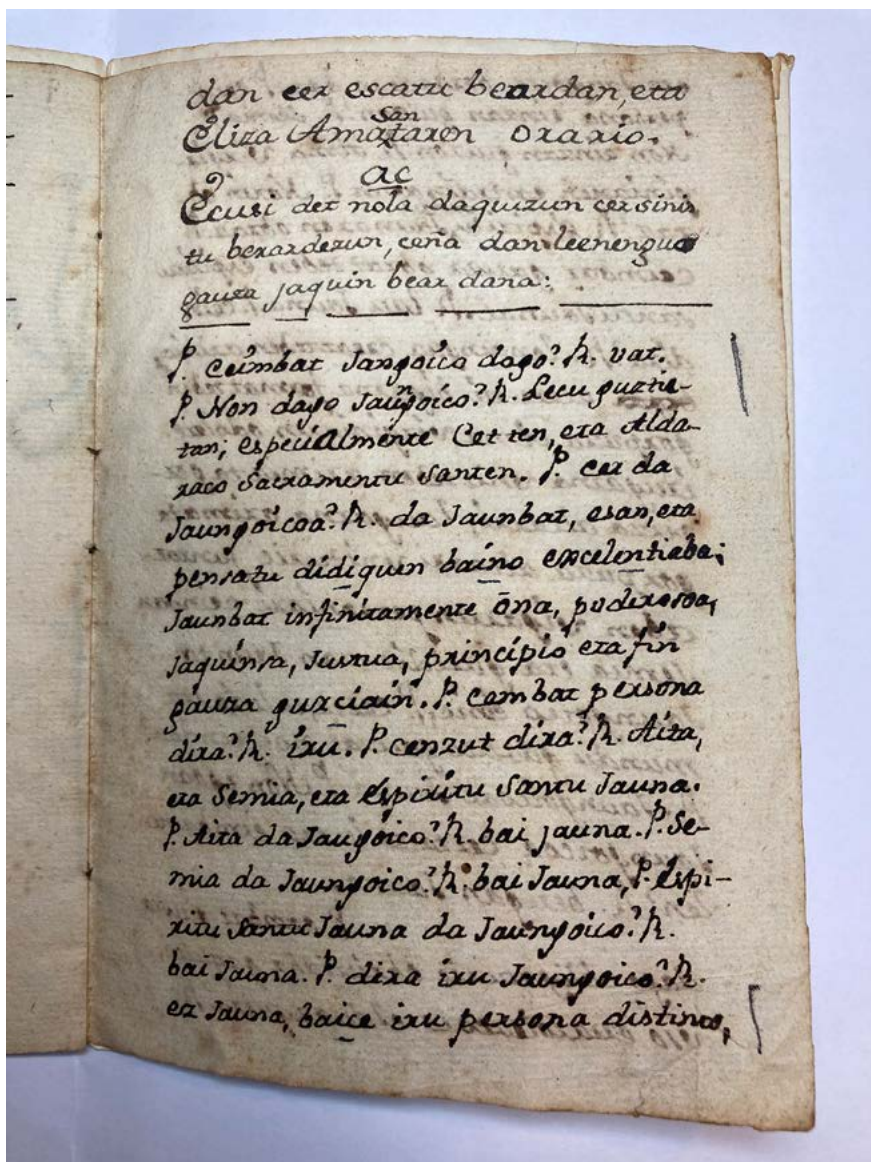 dan cer escatu beardan, eta
San
Eliza Amataren oraxio.
ac
Ecusi det nola daquizun cer sinis
tu berardezun, ceña dan leenenguo
gauza jaquin bear dana:
P. Ceimbat Jangoico dago? R. vat.
P. Non dago Jaungoico? R. Lecu guztie-
tan; especialmente Certen, eta Alda-
raco Sacramentu Santen. P. cer da
Jaungoicoa? R. da Jaunbat, esan, eta
pensatu didiquen baino excelentiaba;
Jaunbat infinitamente ona, poderosoa,
jaquinsa, Justua, principio eta fin
gauza guzciain. P. cembat persona
dira? R. iru. P. cenzut dira? R. Aita,
eta Semia, eta Espiritu Santu Jauna.
P. Aita da Jaugoico? R. bai jauna. P. Se-
mia da Jaungoico? R. bai Jauna, P. Espi-
ritu Santu Jauna da Jaungoico? R.
bai Jauna. P. dira iru Jaungoico? R.
ez Jauna, baice iru persona distinto,